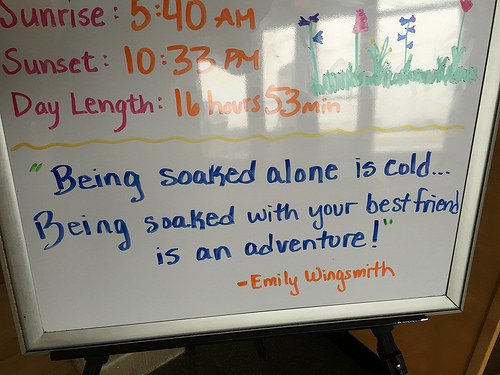 Sunrise: 5:40 AM
Sunset: 10:33 PM
Day Length: 16 hours 53 min
"Being soaked alone is cold...
Being soaked with your best friend
is an adventure!"
-Emily Wingsmith